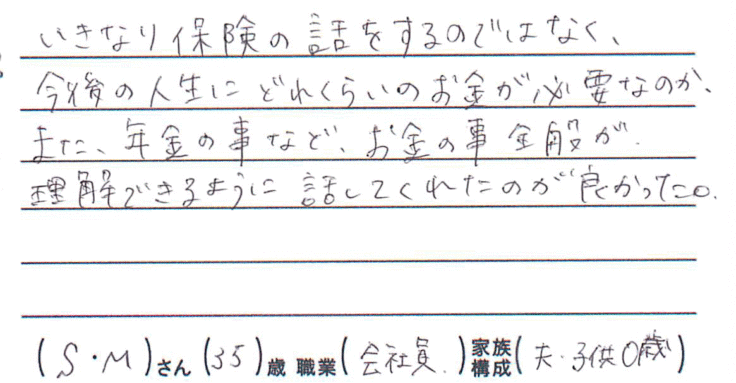 いきなり保険の話をするのではなく、
今後の人生にどれくらいのお金が必要なのか、
また、年金の事など、お金の事全般が
理解できるように話してくれたのが良かった。
(S・M)さん(35)歳 職業(会社員)家族構成(夫・子供0歳)